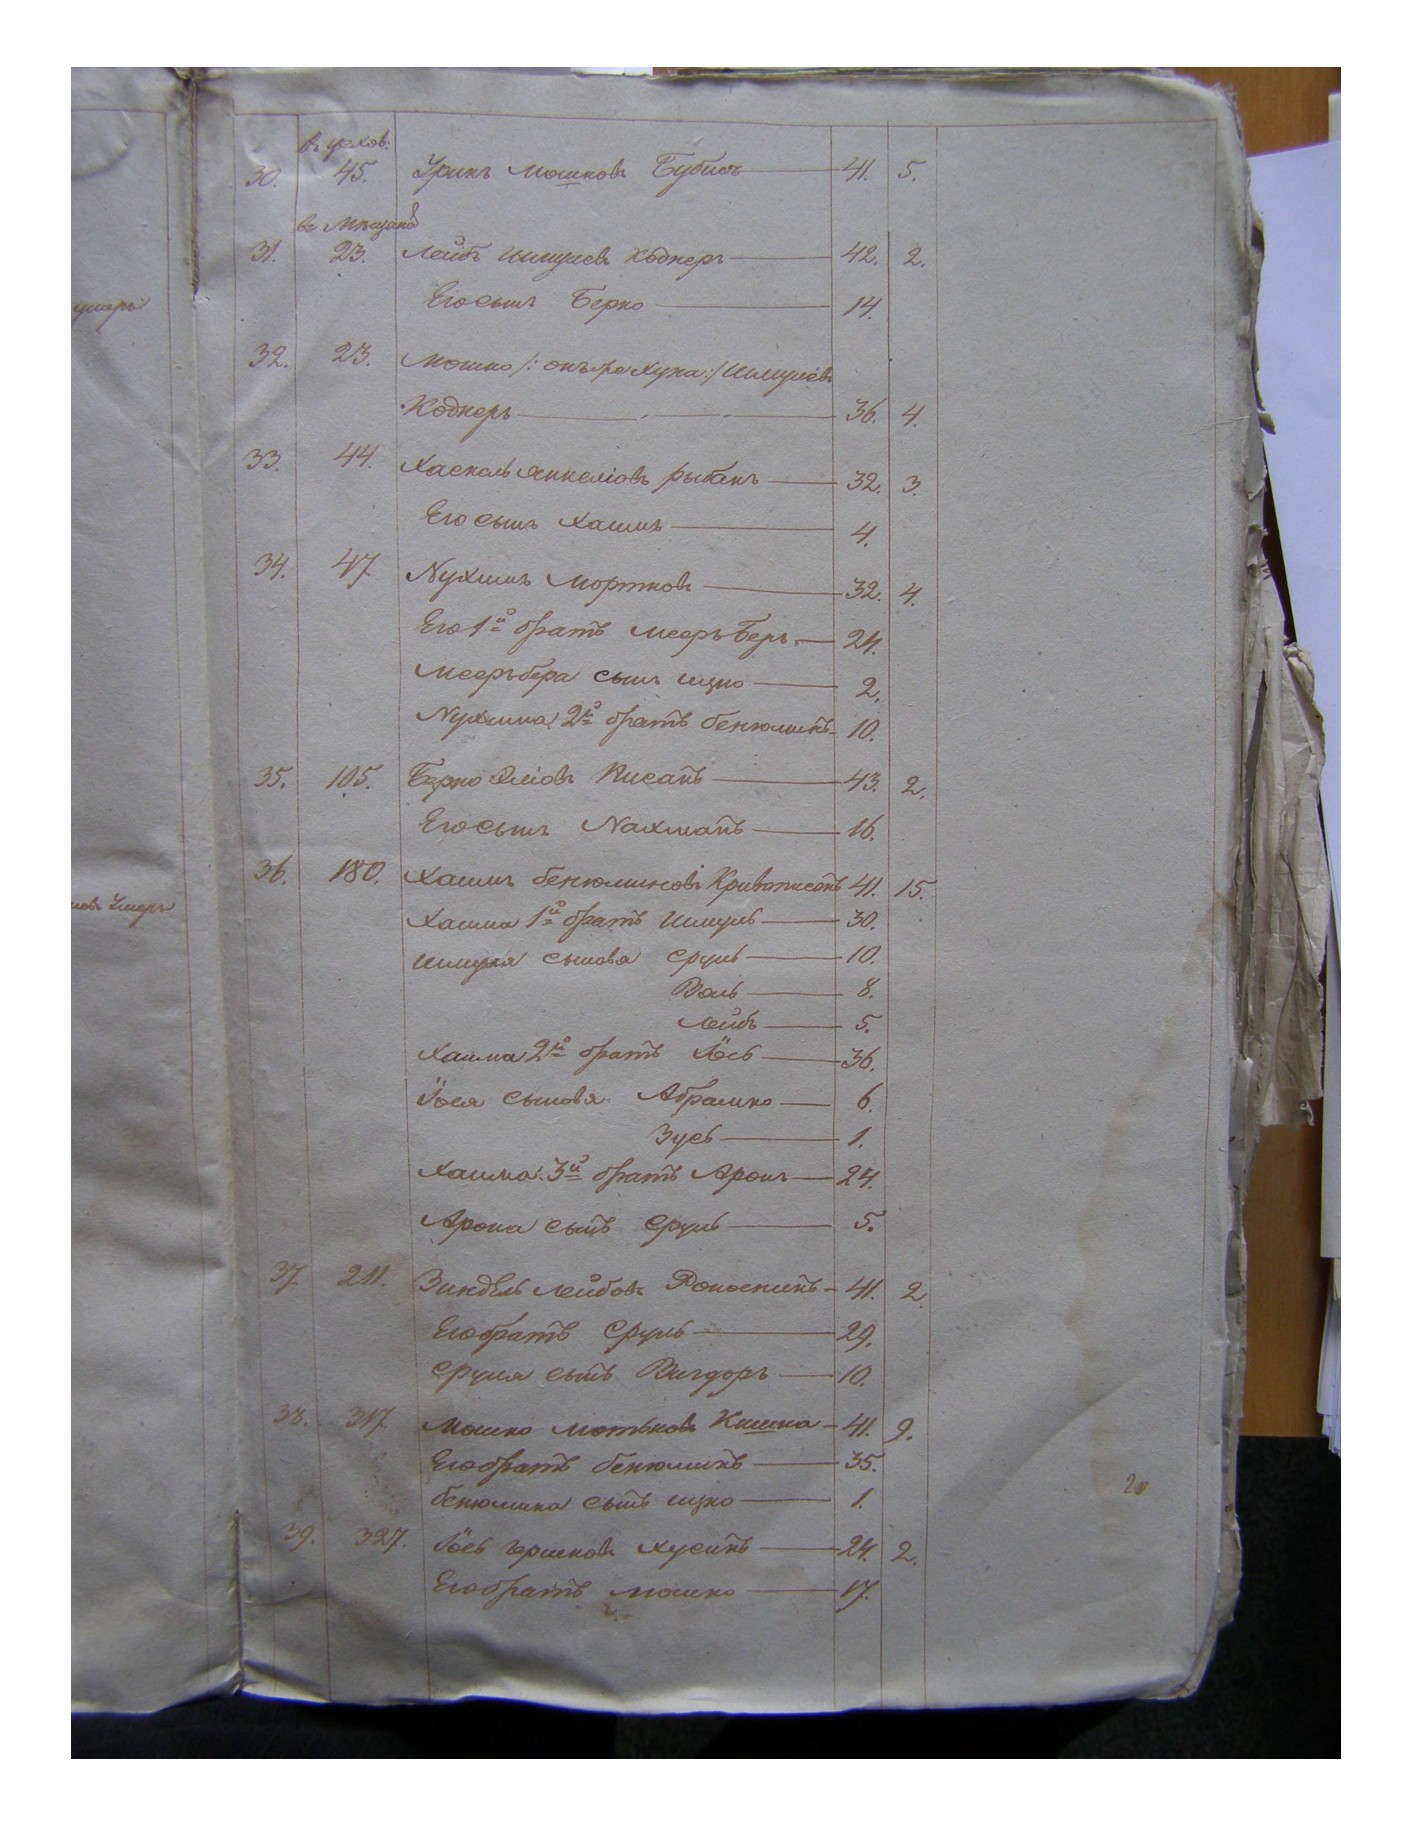 въ цехов:
30. 45. Урикъ Мошковъ Бубисъ 41. 5.
въ Мѣщана
31. 23. Лейбъ Шмулевъ Коднеръ 42. 2.
Его сынъ Берко 14.
32. 23. Мошко /: онъ же Хуна :/ Шмулевъ
Коднеръ 36. 4.
33. 44. Хаскель Янкеліовъ Рыбакъ 32. 3.
Его сынъ Хаимъ 4.
34. 47 Нухимъ Мортковъ 32. 4.
Его 1й братъ Мееръ Беръ 24.
Мееръ Бера сынъ Ицко 2.
Нухима 2й братъ Бенюминъ 10.
35. 105. Берко Эліовъ Писанъ 43. 2.
Его сынъ Нахманъ 16.
36. 180. Хаимъ Бенюминовъ Кривописанъ 41. 15.
Хаима 1й братъ Шмуль 30.
Шмуля сынова Сруль 10.
Воль 8.
Лейбъ 5.
Хаима 2й братъ Іось 36.
Іося сыновя Абрамко 6.
Зусь 1.
Хаима 3й братъ Аронъ 24.
Арона сынъ Сруль 5.
37 211. Зиндель Лейбовъ 41. 2.
Его братъ Сруль 29.
Сруля сынъ Вигдоръ 10.
38. 317. Мошко Мотьковъ Кишка 41. 9.
Его братъ Бенюминъ 35.
Бенюмина сынъ Ицко 1.
39. 327. Іось Гершковъ Хусинъ 24. 2.
Его братъ Мошко 17.
умеръ
умеръ